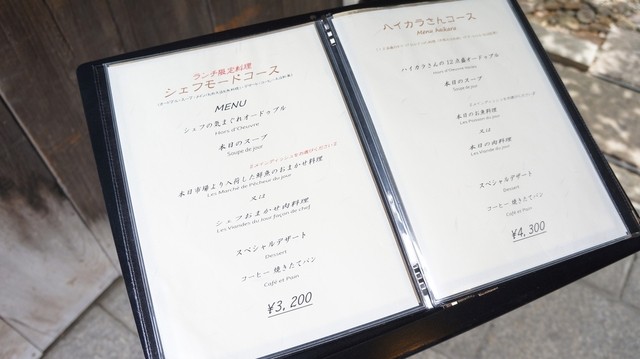 ランチ限定料理
シェフモードコース
MENU
シェフの気まぐれオードゥブル
Hors d'Oeuvre
本日のスープ
Soupe de jour
本日市場より入荷した鮮魚のおまかせ料理
Les Marché de Pêcheur du jour
又は
シェフおまかせ肉料理
Les Viandes du jour façon de chef
スペシャルデザート
Dessert
コーヒー 焼きたてパン
Café et Pain
¥3,200
ヘイカラさんコース
Menu haikara
ハイカラさんの12点盛オードゥブル
本日のスープ
Soupe de jour
本日のお魚料理
Les Poisson du jour
又は
本日の肉料理
Les Viande du jour
スペシャルデザート
Dessert
コーヒー 焼きたてパン
Café et Pain
¥4,300